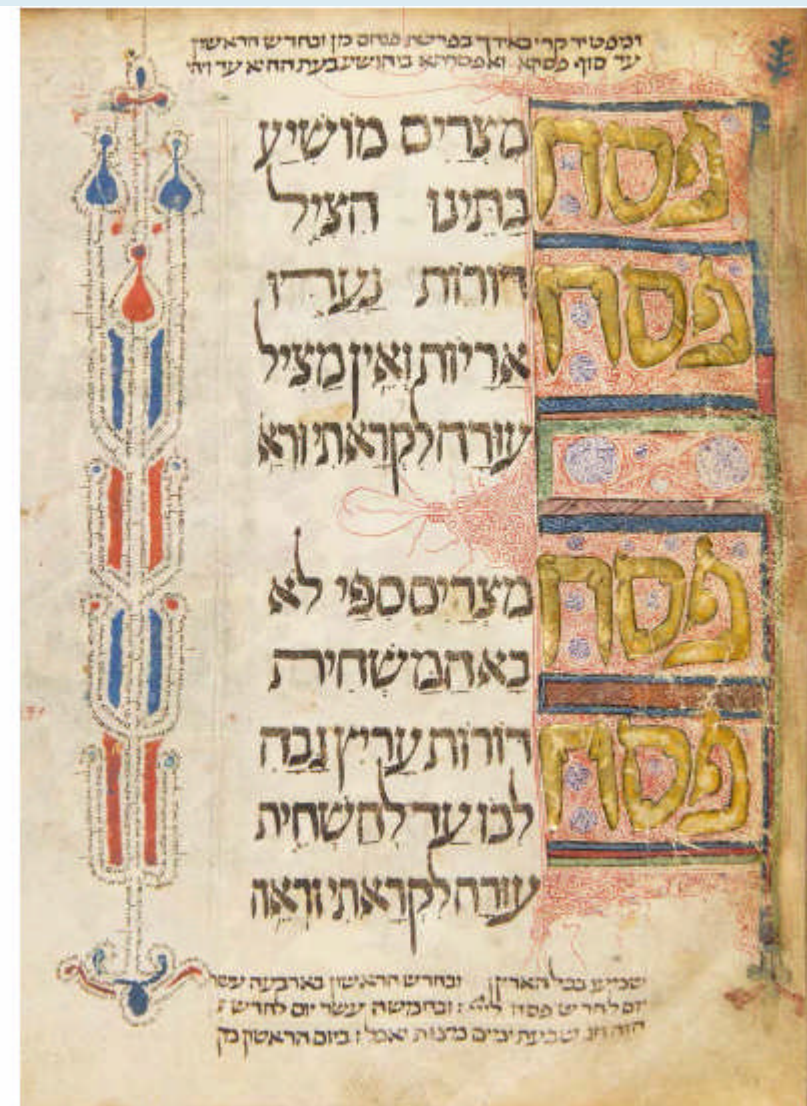 ומפטיר קרי באידך בפרשת פנחס מן ובחדש הראשון
עד סוף פסקא ואפטרתא ביהושע בעת ההיא עד ויהי
פסח מצרים מושיע
בתינו הציל
פסח דורות נערו
אריות ואין מציל
עורה לקראתי וראה
פסח מצרים ספי לא
בא המשחית
פסח דורות עריץ גבה
לבו עד להשחית
עורה לקראתי וראה
ובחדש הראשון בארבעה עשר
יום לחדש פסח ליי׳: ובחמשה עשר יום לחדש
הזה חג שבעת ימים מצות יאכל: ביום הראשון מק